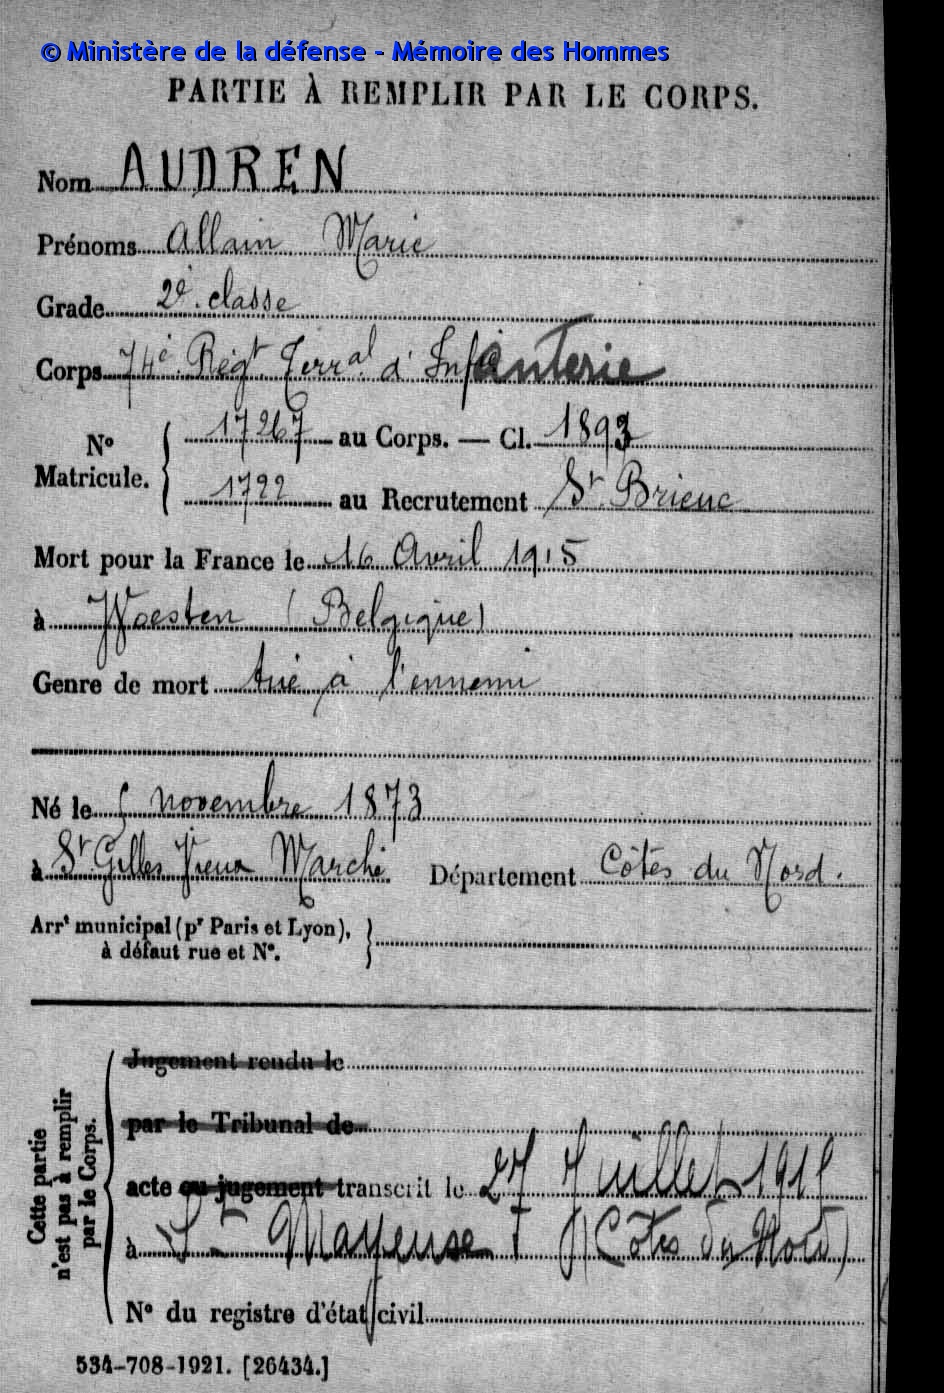 © Ministère de la défense - Mémoire des Hommes
PARTIE À REMPLIR PAR LE CORPS.
Nom AUDREN
Prénoms Allain Marie
Grade 2e classe
Corps 74e Régt Terral d'Infanterie
No Matricule. { 17267 au Corps. — Cl. 1893
1722 au Recrutement St Brieuc
Mort pour la France le 16 Avril 1915
à Woesten (Belgique)
Genre de mort tué à l'ennemi
Né le 5 novembre 1873
à St Gilles Vieux Marché Département Côtes du Nord.
Arrt municipal (pr Paris et Lyon), }
à défaut rue et No.
Cette partie
n'est pas à remplir
par le Corps.
Jugement rendu le
par le Tribunal de
acte ou jugement transcrit le 27 Juillet 1915
à St Mayeux (Côtes du Nord)
No du registre d'état civil
534-708-1921. [26434.]